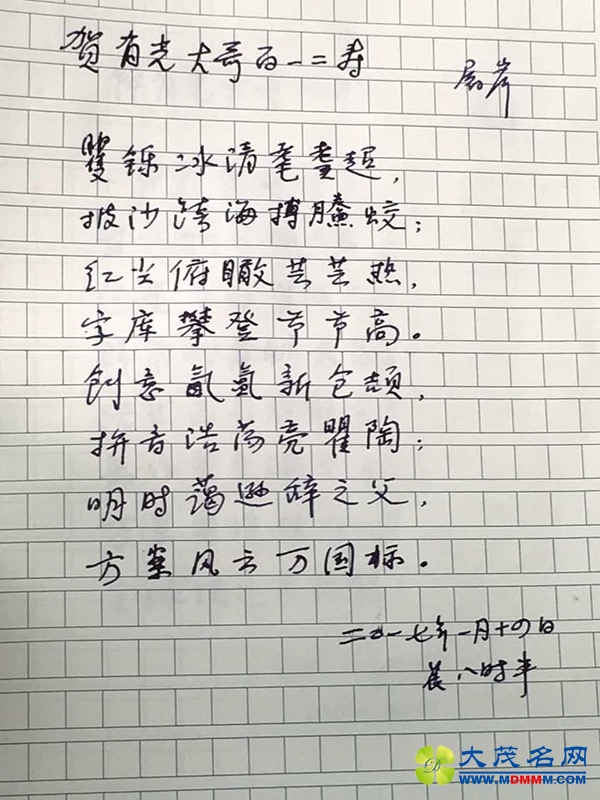 贺有光大哥百一二寿
矍铄冰清耄耋超，
披沙跨海搏騰蛟；
红尘俯瞰芸芸热，
字库攀登节节高。
创意氤氲新仓颉，
拼音浩荡亮瞿陶；
明时蔼逊辞之父，
方案风云万国标。
二〇一七年一月十四日
晨八时半
大茂名网
WWW.MDMMM.COM